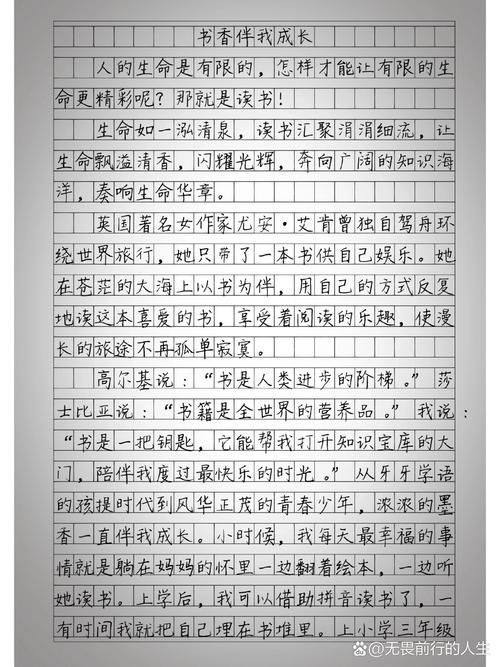 书香伴我成长
人的生命是有限的，怎样才能让有限的生
命更精彩呢？那就是读书！
生命如一泓清泉，读书汇聚涓涓细流，让
生命飘溢清香，闪耀光辉，奔向广阔的知识海
洋，奏响生命华章。
英国著名女作家尤安·艾肯曾独自驾舟环
绕世界旅行，她只带了一本书供自己娱乐。她
在苍茫的大海上以书为伴，用自己的方式反复
地读这本喜爱的书，享受着阅读的乐趣，使漫
长的旅途不再孤单寂寞。
高尔基说：“书是人类进步的阶梯。”莎
士比亚说：“书籍是全世界的营养品。”我说：
“书是一把钥匙，它能帮我打开知识宝库的大
门，陪伴我度过最快乐的时光。”从牙牙学语
的孩提时代到风华正茂的青春少年，浓浓的墨
香一直伴我成长。小时候，我每天最幸福的事
情就是躺在妈妈的怀里一边翻着绘本，一边听
她读书。上学后，我可以借助拼音读书了，一
有时间我就把自己埋在书堆里。上小学三年级
@无畏前行的人生